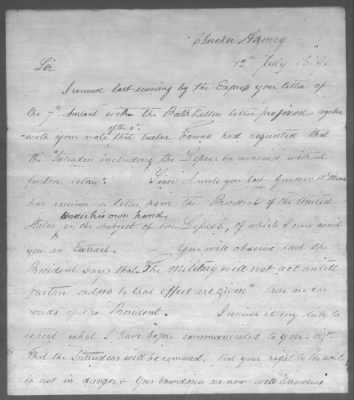 Cherokee Agency
12th July 1814.
Sir
I received last evening by the Express your letter of
the 7th Instant with the Path Killers letter prefixed together
with your note of the 8th that twelve Towns had requested that
the Intruders including the be removed without
further delay. Since I wrote you last Governor
has received a letter from the President of the United
States, under his own hand, on the subject of the of which I now send
you an Extract. You will observe that the
President says that "The Military will not act untill
further orders to that effect are given" these are the
words of the President. I conceive it my duty to
repeat what I have before communicated to you: viz
that the Intruders will be removed, that your right to the soil
is not in danger & your boundaries are now well known